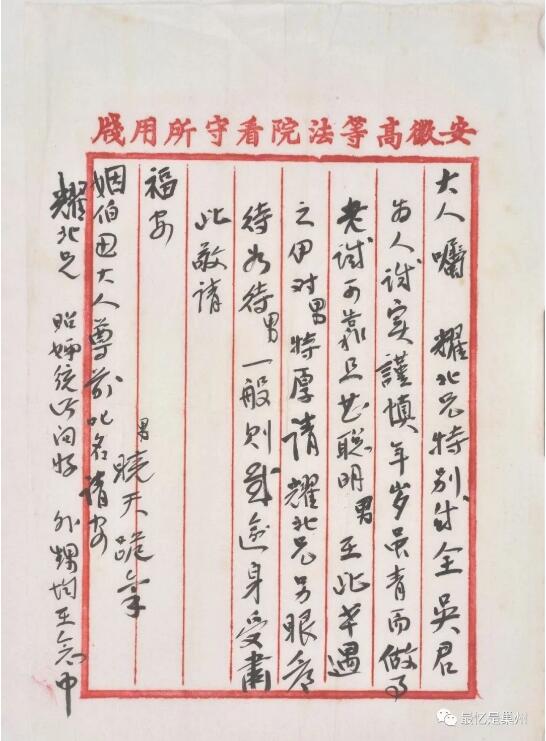 安徽高等法院看守所用牋
大人嘱 耀北兄特别成全 吴君
为人诚实謹慎年岁虽青而做事
老诚可靠且甚聪明男至此半遇
之伊对男特厚请耀北兄另眼看
待如待男一般则感逾身受肅
此敬请
福安
男 晓天 跪禀
姻伯 大人尊前叱名请安
耀北兄 问好 外甥均在念中
最忆是巢州